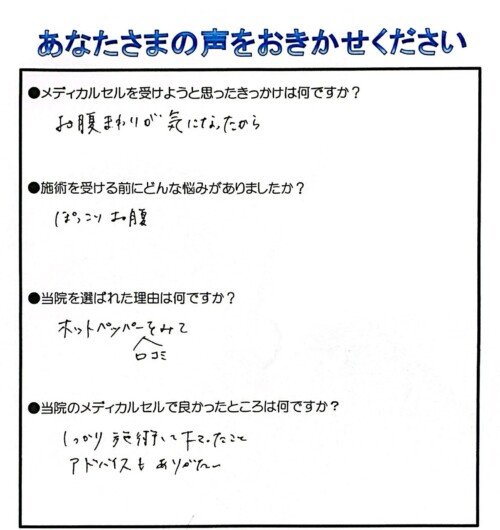 あなたさまの声をおきかせください
●メディカルセルを受けようと思ったきっかけは何ですか？
お腹まわりが気になったから
●施術を受ける前にどんな悩みがありましたか？
ぽっこりお腹
●当院を選ばれた理由は何ですか？
ホットペッパーをみて
口コミ
●当院のメディカルセルで良かったところは何ですか？
しっかり施術して下さったこと
アドバイスもありがたい